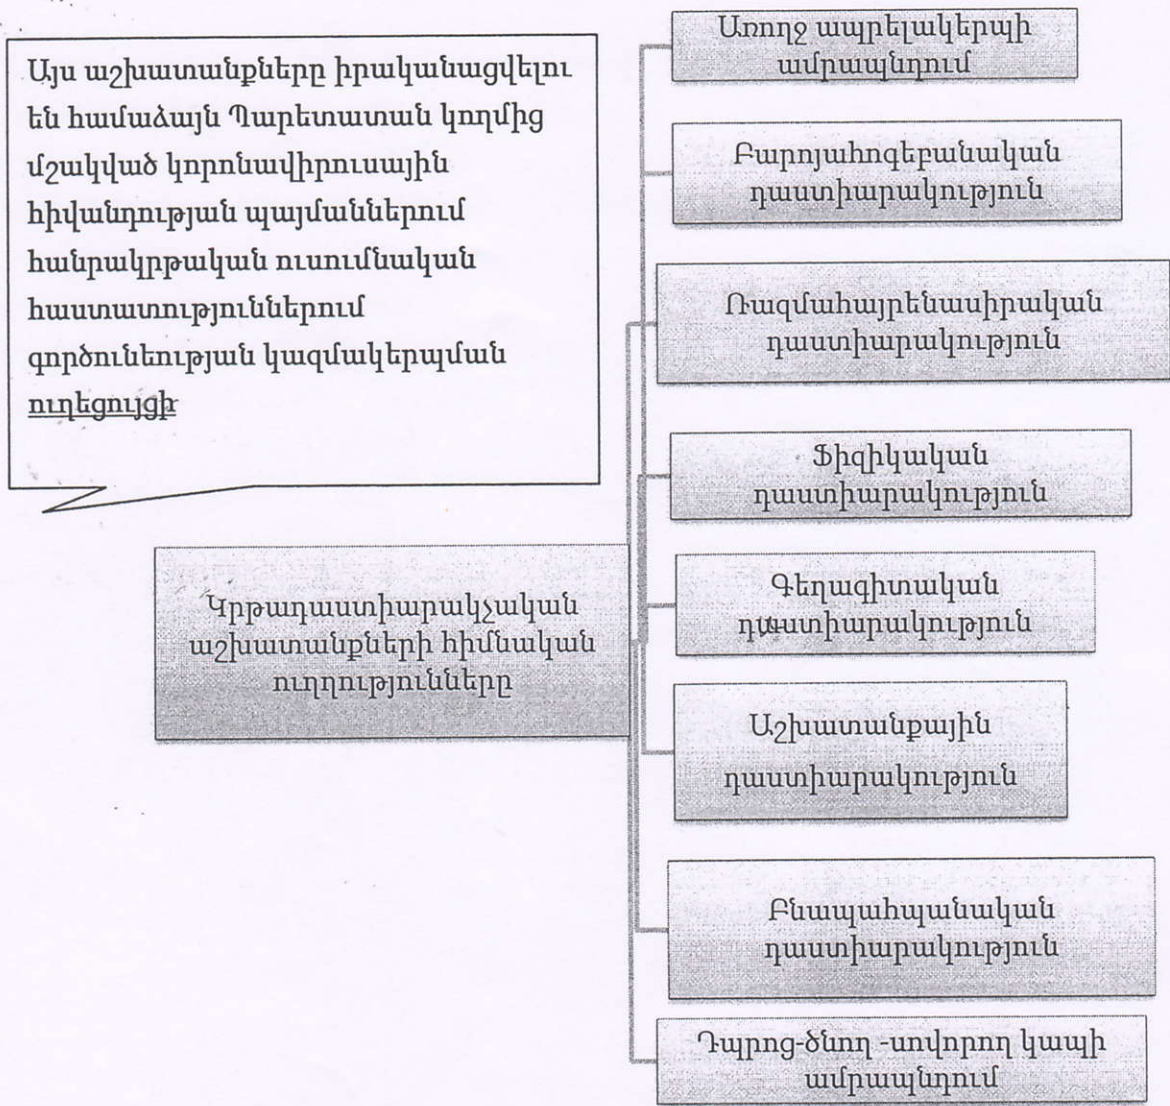 Այս աշխատանքները իրականացվելու
են համաձայն Պարետատան կողմից
մշակված կորոնավիրուսային
հիվանդության պայմաններում
հանրակրթական ուսումնական
հաստատություններում
գործունեության կազմակերպման
ուղեցույցի
Կրթադաստիարակչական
աշխատանքների հիմնական
ուղղությունները
Առողջ ապրելակերպի
ամրապնդում
Բարոյահոգեբանական
դաստիարակություն
Ռազմահայրենասիրական
դաստիարակություն
Ֆիզիկական
դաստիարակություն
Գեղագիտական
դաստիարակություն
Աշխատանքային
դաստիարակություն
Բնապահպանական
դաստիարակություն
Դպրոց-ծնող -սովորող կապի
ամրապնդում